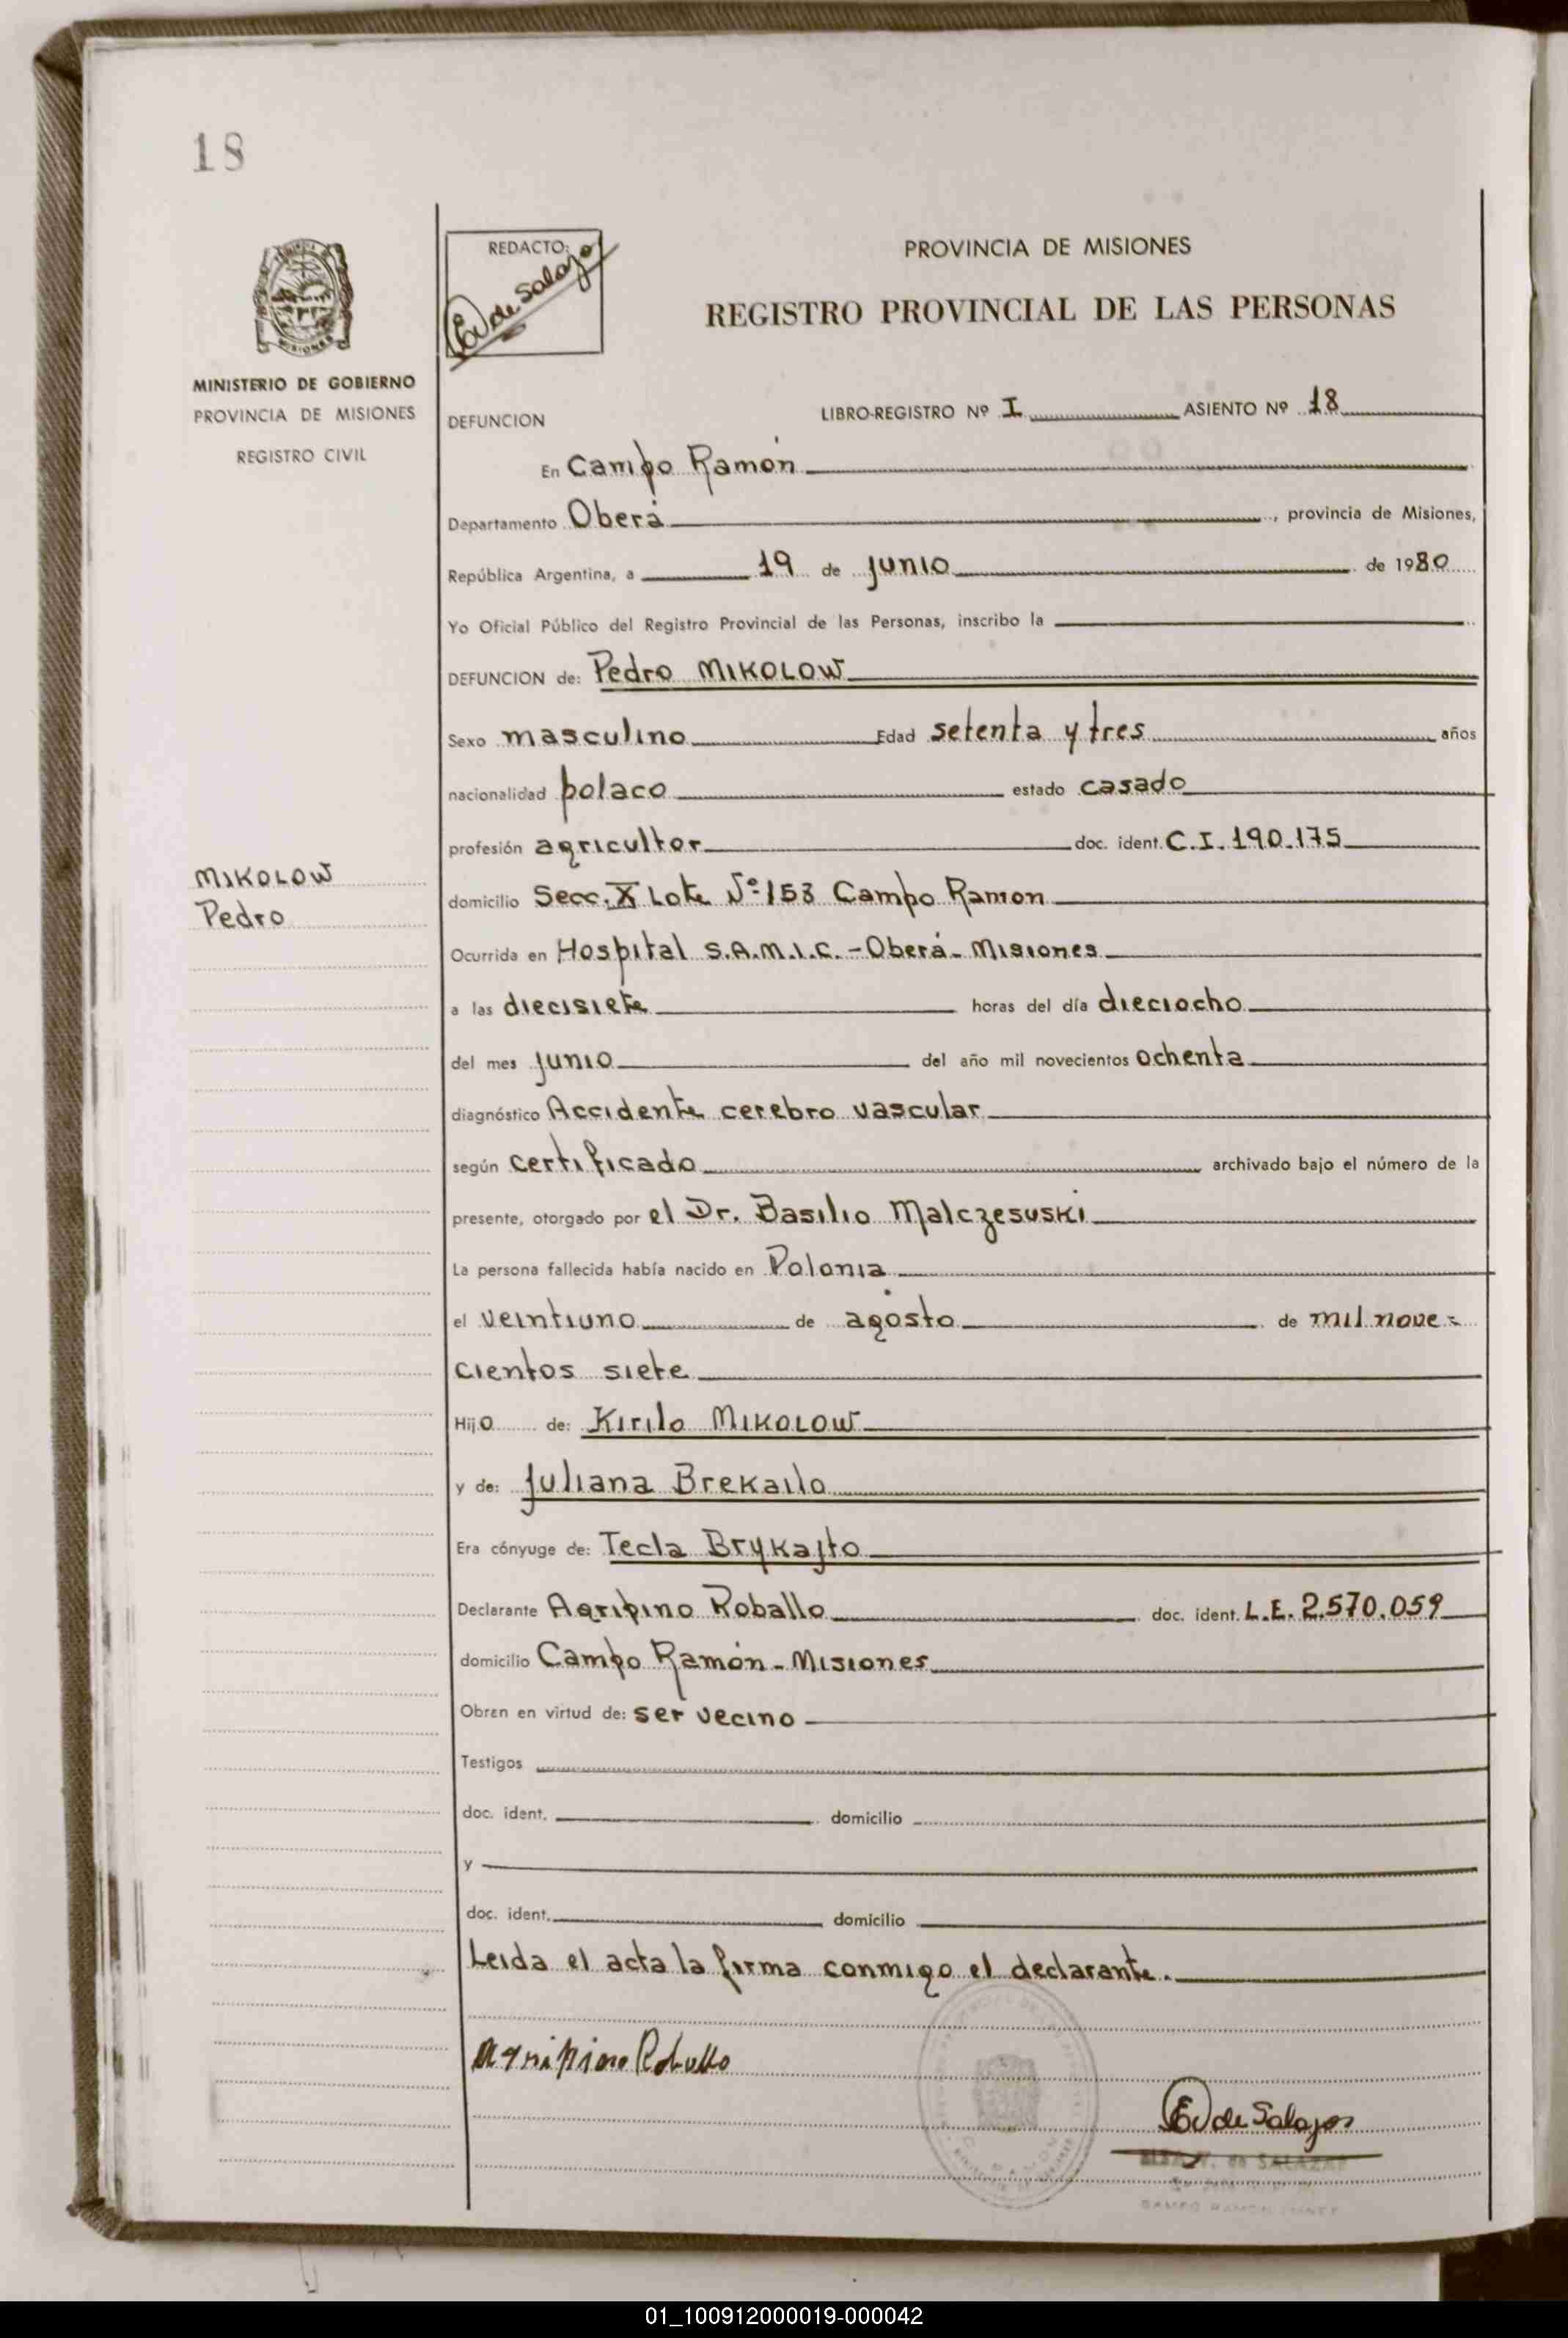 18
MINISTERIO DE GOBIERNO
PROVINCIA DE MISIONES
REGISTRO CIVIL
REDACTO:
de Salazar
PROVINCIA DE MISIONES
REGISTRO PROVINCIAL DE LAS PERSONAS
DEFUNCION LIBRO-REGISTRO Nº I ASIENTO Nº 18
En Campo Ramón
Departamento Oberá, provincia de Misiones,
República Argentina, a 19 de junio de 1980
Yo Oficial Público del Registro Provincial de las Personas, inscribo la
DEFUNCION de: Pedro MIKOLOW
Sexo masculino Edad setenta y tres años
nacionalidad polaco estado casado
profesión agricultor doc. ident. C.I. 190.175
MIKOLOW
Pedro
domicilio Secc. X Lote Nº 153 Campo Ramon
Ocurrida en Hospital S.A.M.I.C. - Oberá - Misiones
a las diecisiete horas del día dieciocho
del mes junio del año mil novecientos ochenta
diagnóstico Accidente cerebro vascular
según certificado archivado bajo el número de la
presente, otorgado por el Dr. Basilio Malczesuski
La persona fallecida había nacido en Polonia
el veintiuno de agosto de mil nove=
cientos siete
Hijo de: Kirilo MIKOLOW
y de: Juliana Brekailo
Era cónyuge de: Tecla Brykajto
Declarante Agripino Roballo doc. ident. L.E. 2.570.059
domicilio Campo Ramón - Misiones
Obran en virtud de: ser vecino
Testigos
doc. ident. domicilio
y
doc. ident. domicilio
Leida el acta la firma conmigo el declarante.
Agripino Roballo
de Salazar
de SALAZAR
CAMPO RAMON
01_100912000019-000042